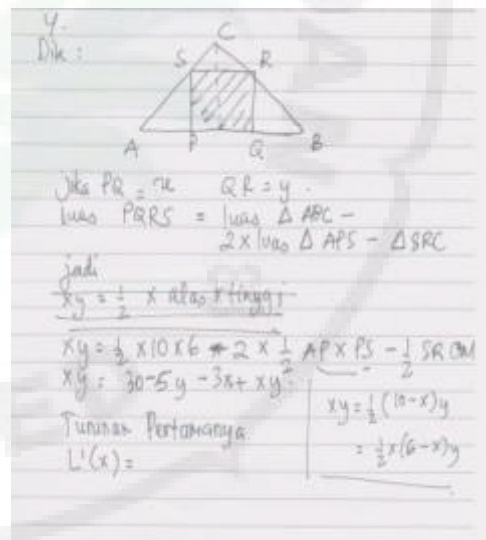 4.
Dik :
C
S R
A P Q B
Jika PQ = x QR = y .
luas PQRS = luas Δ ABC -
2 x luas Δ APS - Δ SRC
jadi
xy = 1/2 x alas x tinggi
xy = 1/2 x 10 x 6 - 2 x 1/2 AP x PS - 1/2 SR
xy = 30 - 5y - 3x + xy
Turunan Pertamanya
L'(x) =
xy = 1/2 (10-x)y
= 1/2 x(6-x)y